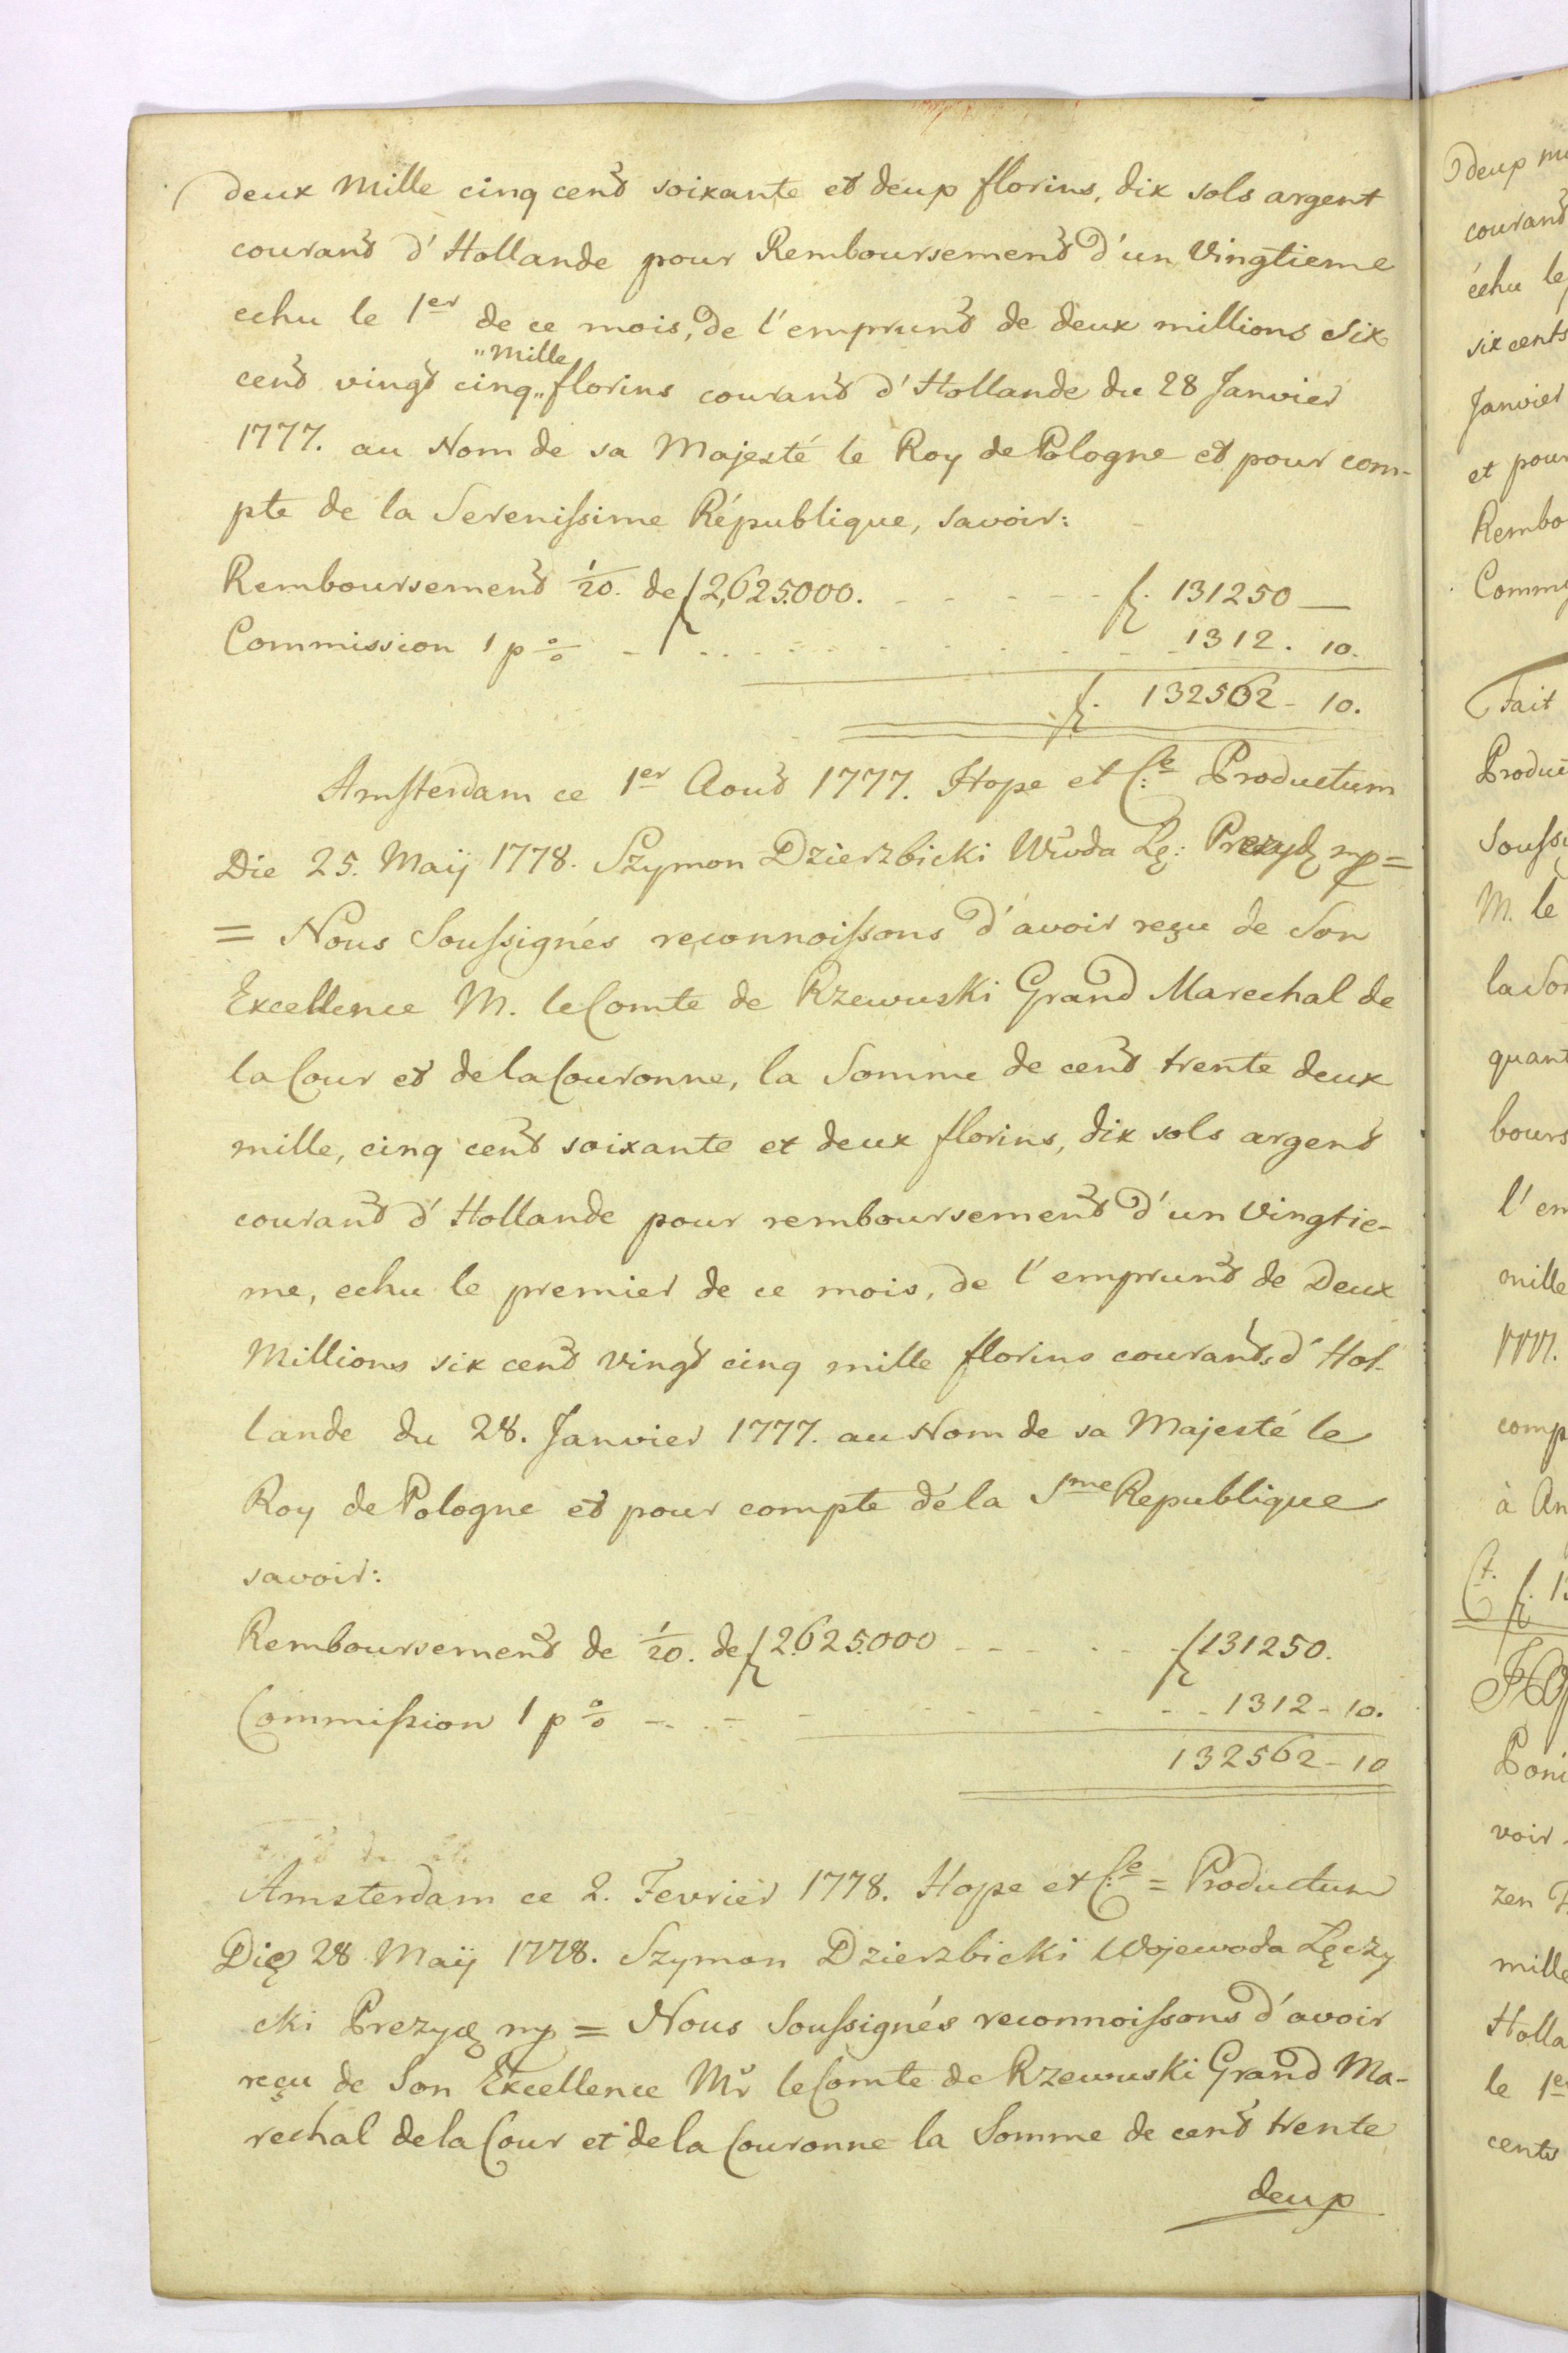 deux Mille cinq cent soixante et deup florins, dix sols argent
courant d'Hollande pour Remboursement d'un Vingtieme
echu le 1er de ce mois, de l'emprunt de deux millions Six
"Mille
cent vingt cinq" florins courant d'Hollande du 28 Janvier
1777. au Nom de sa Majesté le Roy de Pologne et pour com-
pte de la Serenissime République, savoir:
Remboursement 1/20. de f 2,625.000. - - - - - f. 131250 —
Commission 1 p % - - - - - - - - 1312. 10.
f. 132562 - 10.
Amsterdam ce 1er Aout 1777. Hope et C:e Productum
Die 25. Maij 1778. Szymon Dzierzbicki Wwda Lę: Prezyd mp =
= Nous Soussignés reconnoissons d'avoir reçu de Son
Excellence M. le Comte de Rzewuski Grand Marechal de
la Cour et de la Couronne, la Somme de cent trente deux
mille, cinq cent soixante et deux florins, dix sols argent
courant d'Hollande pour remboursement d'un Vingtie-
me, echu le premier de ce mois, de l'emprunt de Deux
Millions six cent vingt cinq mille florins courants d'Hol-
lande du 28. Janvier 1777. au Nom de sa Majesté le
Roy de Pologne et pour compte dé la Sme Republique
savoir:
Remboursement de 1/20. de f 2.625.000 - - - - f 131250.
Commission 1 p % - - - - - - - - 1312 - 10.
132562 - 10
Amsterdam ce 2. Fevrier 1778. Hope et C:e = Productum
Die 28 Maij 1778. Szymon Dzierzbicki Wojewoda Lęczy
cki Prezyd mp = Nous Soussignés reconnoissons d'avoir
reçu de Son Excellence Mr le Comte de Rzewuski Grand Ma-
rechal de la Cour et de la Couronne la Somme de cent trente
deup
deup
courant
échu le
six cents
Janvier
et pour
Rembo
Comm
Fait
Produc
Souss
M. le
la Som
quant
bours
l'em
mille
1777.
comp
à Am
Poni
voir
zen
mille
Holla
le 1er
cents